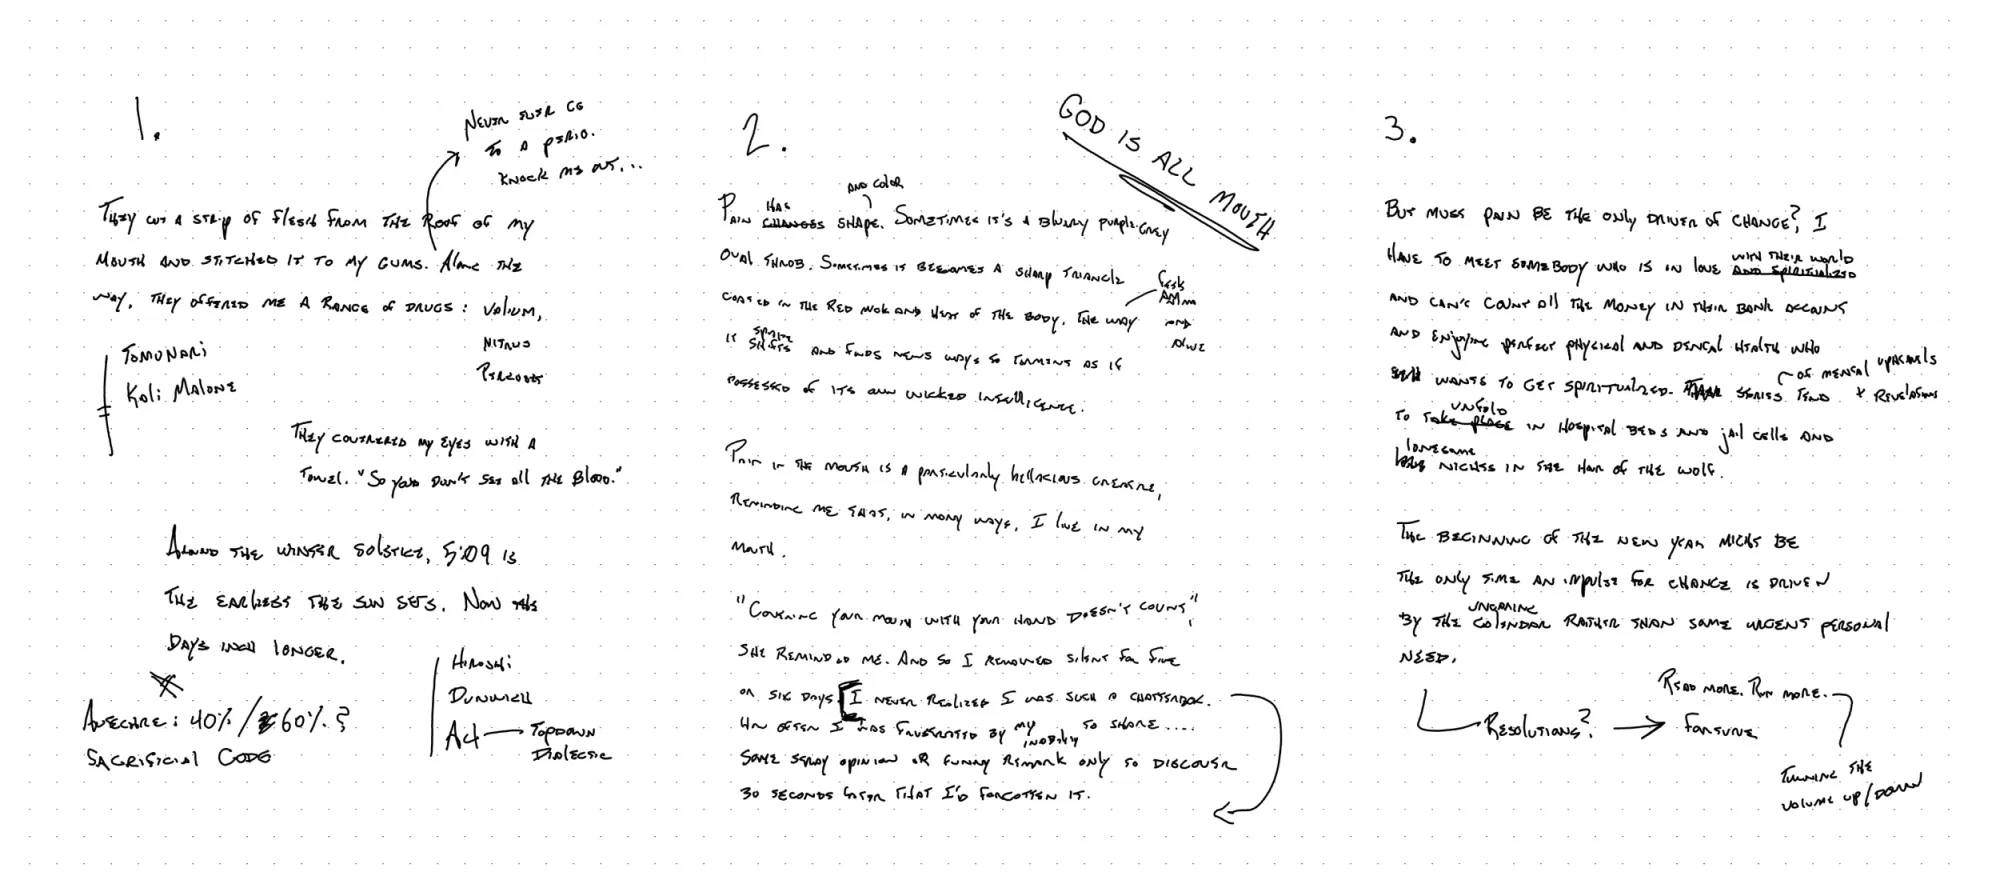 1.
Never ever go
to a perio.
Knock me out...
They cut a strip of flesh from the roof of my
mouth and stitched it to my gums. Along the
way, they offered me a range of drugs: Valium,
Nitrus
Percocet
Tomonari
Kali Malone
They covered my eyes with a
towel. "So you don't see all the blood."
Around the winter solstice, 5:09 is
the earliest the sun sets. Now the
days inch longer.
Avecore: 40% / 60%?
Sacrificial Code
Hiroshi
Dunwich
A4 Topdown
Dialectic
2.
GOD IS ALL MOUTH
and color
has
Pain changes shape. Sometimes it's a blurry purple-grey
oval throb. Sometimes it becomes a sharp triangle
coated in the red and heat of the body. The way
and
alive
it shifts and finds new ways to torment as if
possessed of its own wicked intelligence.
Pain in the mouth is a particularly hellacious creature,
reminding me that, in many ways, I live in my
mouth.
"Covering your mouth with your hand doesn't count,"
she reminded me. And so I remained silent for five
or six days. I never realized I was such a chatterbox.
How often I was frustrated by my inability to share....
Some stray opinion or funny remark only to discover
30 seconds later that I'd forgotten it.
3.
But must pain be the only driver of change? I
have to meet somebody who is in love and spiritualized
with their world
and can't count all the money in their bank account
and enjoying perfect physical and dental health who
still wants to get spiritualized. These stories tend
of mental upheavals
+ revelations
unfold
to take place in hospital beds and jail cells and
lonesome
long nights in the hour of the wolf.
The beginning of the new year might be
the only time an impulse for change is driven
by the calendar rather than some urgent personal
need.
Read more. Run more.
Resolutions? → Fortune
Turning the
volume up/down